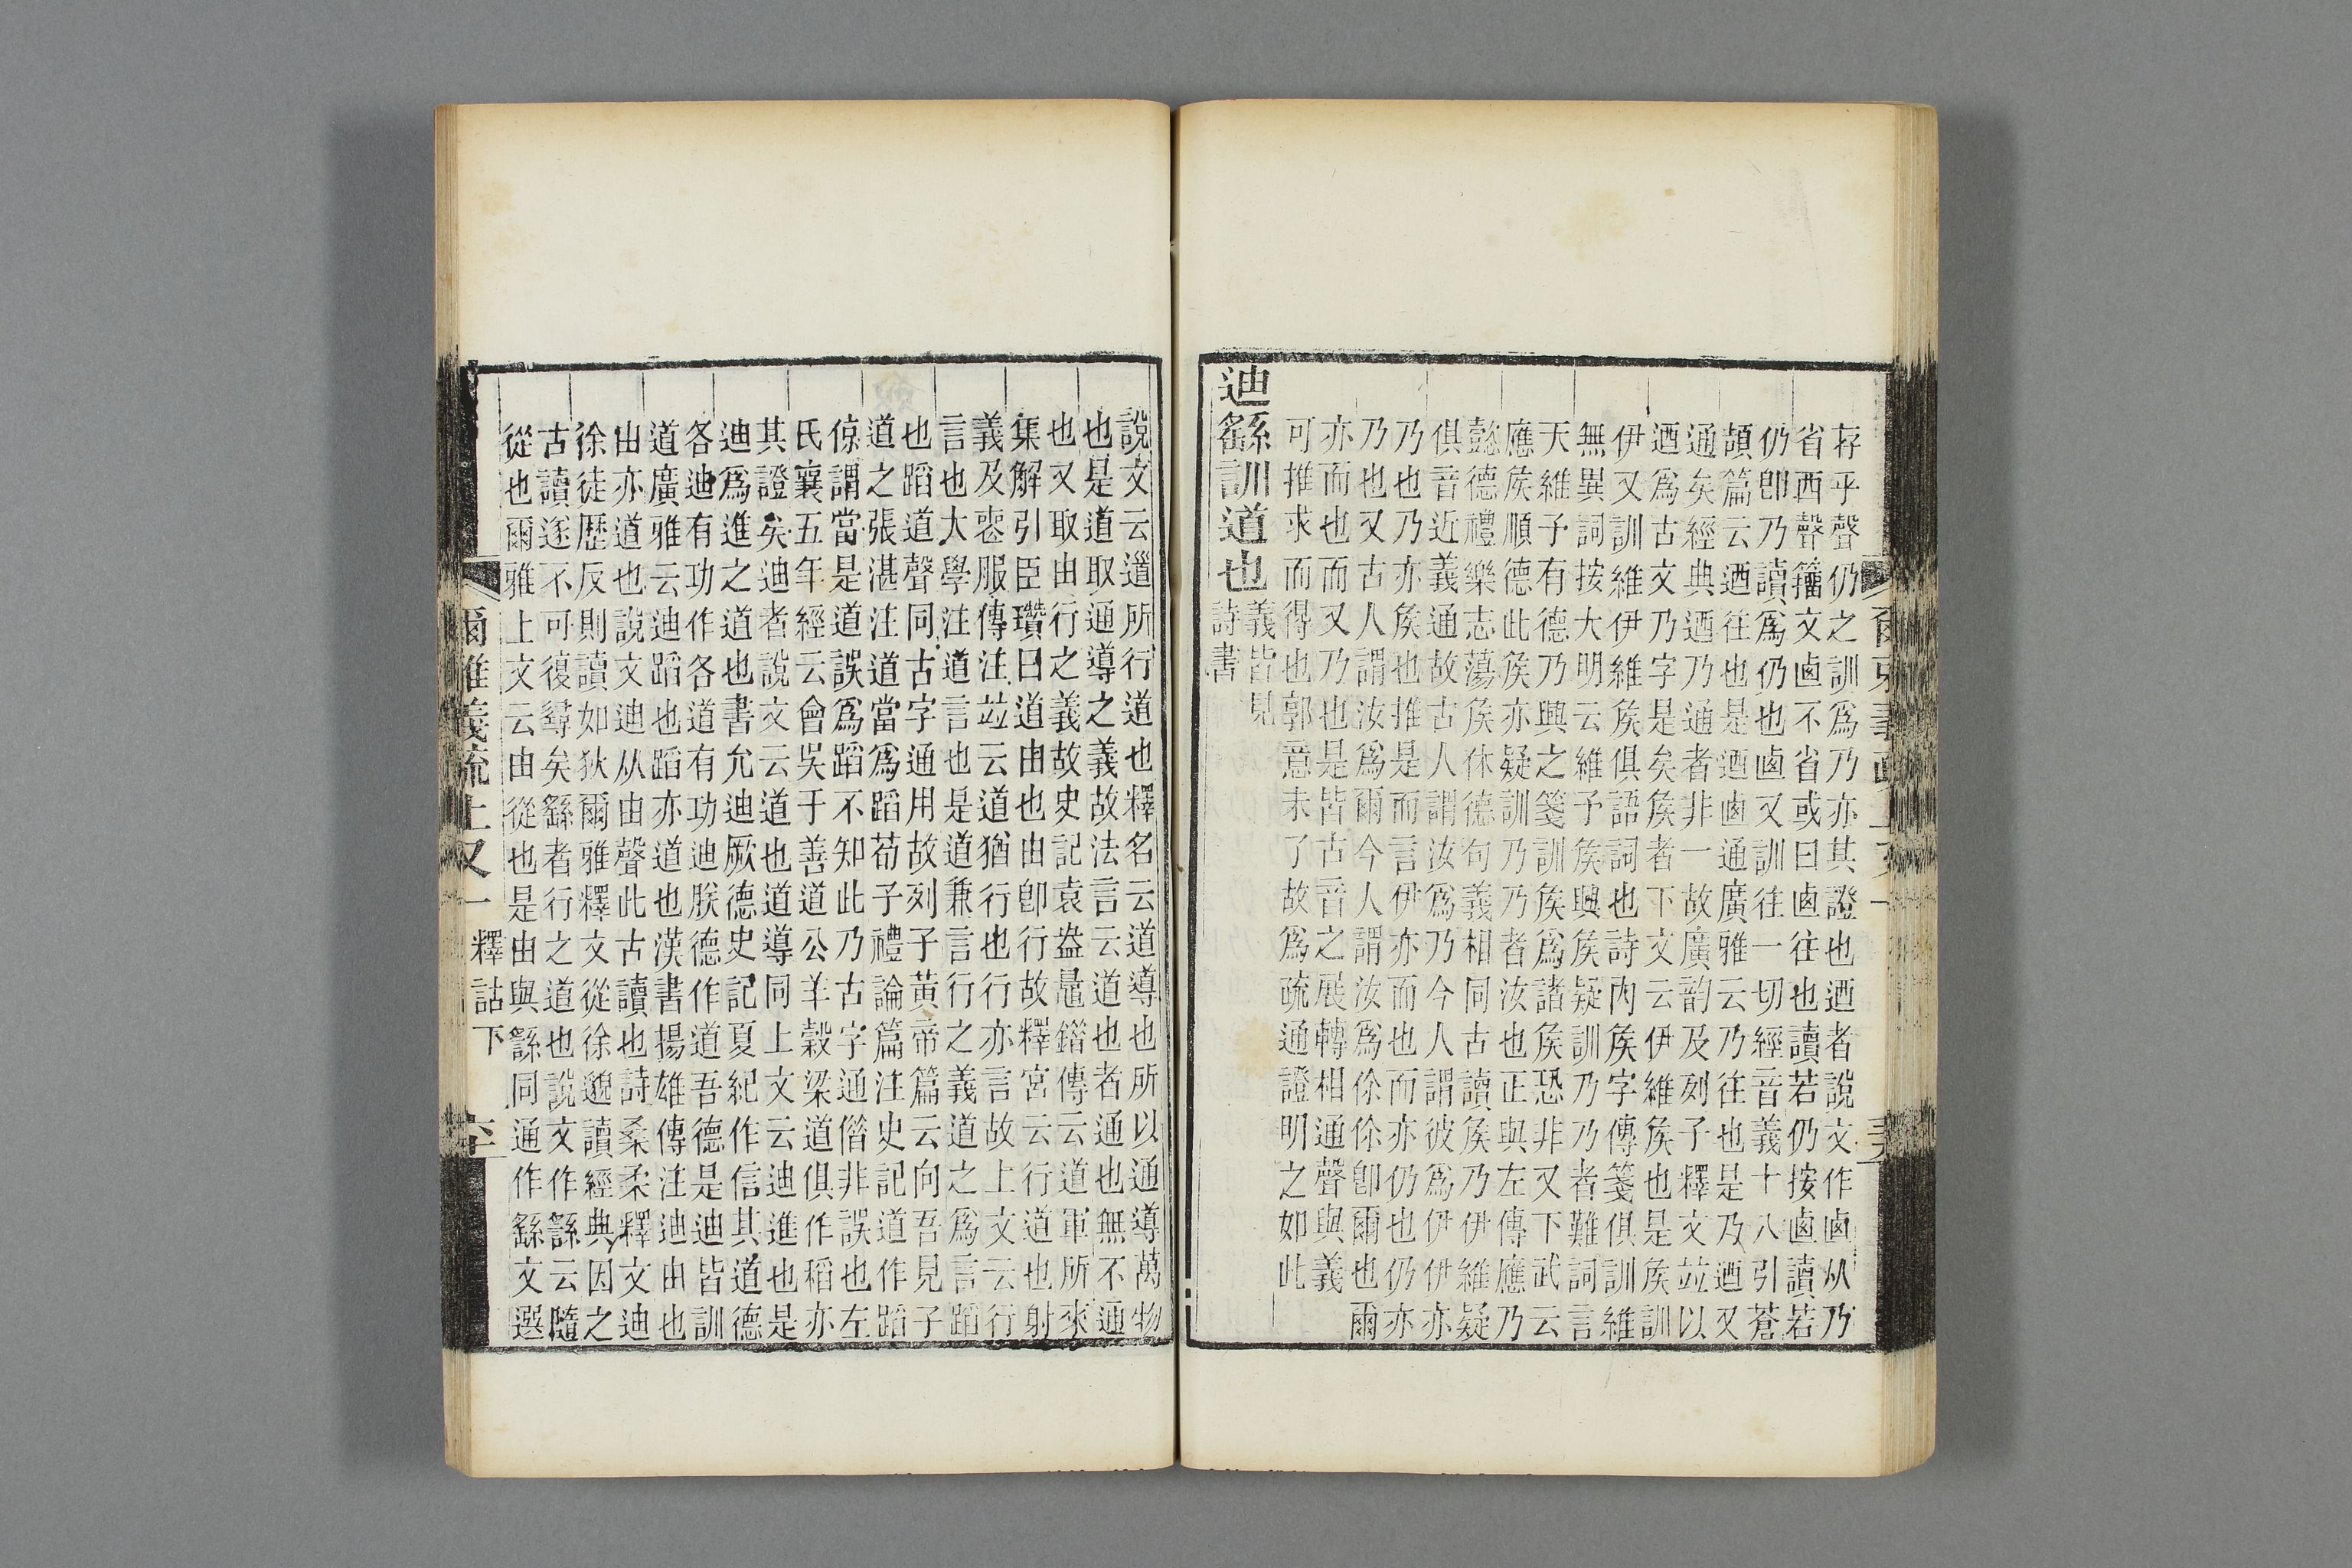 存乎聲仍之訓爲乃亦其證也迺者說文作卥从乃
省西聲籒文卥不省或曰卥往也讀若仍按卥讀若
仍卽乃讀爲仍也卥又訓往一切經音義十八引蒼
頡篇云迺往也是迺卥通廣雅云乃往也是乃迺又
通矣經典迺乃通者非一故廣韵及列子釋文竝以
迺爲古文乃字是矣矦者下文云伊維矦也是矦訓
伊又訓維伊維矦俱語詞也詩內矦字傳箋俱訓維
無異詞按大明云維予矦興矦疑訓乃乃者難詞言
天維予有德乃興之箋訓矦爲諸矦恐非又下武云
應矦順德此矦亦疑訓乃乃者汝也正與左傳應乃
懿德禮樂志蕩矦休德句義相同古讀矦乃伊維疑
俱音近義通故古人謂汝爲乃今人謂彼爲伊伊亦
乃也乃亦矦也推是而言伊亦而也而亦仍也仍亦
乃也又古人謂汝爲爾今人謂汝爲伱伱卽爾也爾
亦而也而又乃也是皆古音之展轉相通聲與義
可推求而得也郭意未了故爲疏通證明之如此
迪繇訓道也義皆見詩書
說文云道所行道也釋名云道導也所以通導萬物
也是道取通導之義故法言云道也者通也無不通
也又取由行之義故史記袁盎鼂錯傳云道軍所來
集解引臣瓚曰道由也由卽行故釋宮云行道也射
義及喪服傳注竝云道猶行也行亦言故上文云行
言也大學注道言也是道兼言行之義道之爲言蹈
也蹈道聲同古字通用故列子黃帝篇云向吾見子
道之張湛注道當爲蹈荀子禮論篇注史記道作蹈
倞謂當是道誤爲蹈不知此乃古字通偕非誤也左
氏襄五年經云會吳于善道公羊穀梁道俱作稻亦
其證矣迪者說文云道也道導同上文云迪進也是
迪爲進之道也書允迪厥德史記夏紀作信其道德
各迪有功作各道有功迪朕德作道吾德是迪皆訓
道廣雅云迪蹈也蹈亦道也漢書揚雄傳注迪由也
由亦道也說文迪从由聲此古讀也詩桑柔釋文迪
徐徒歷反則讀如狄爾雅釋文從徐邈讀經典因之
古讀遂不可復尋矣繇者行之道也說文作䌛云隨
從也爾雅上文云由從也是由與䌛同通作繇文選
爾雅義疏上又一 釋詁下 六十